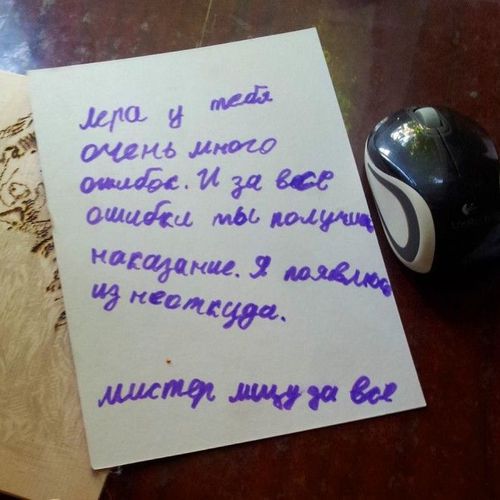 лера у тебя
очень много
ошибок. И за все
ошибки ты получиш
наказание. Я появлюс
из неоткуда.
мистер мщу за все